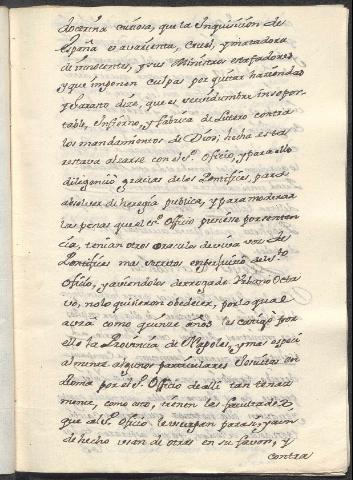 doctrina curiosa, que la Inquisición de
España es avarienta, Cruel, y matadora
de innocentes, y sus Ministros estafadores
y que imponen culpas por quitar haziendas
y Sarasto dize, que es servidumbre insopor
table, Infierno, y fabrica de Lutero contra
los mandamientos de Dios; hecha esta
restava alzarse con el S.to Oficio, y para ello
diligenció gracias de los Pontifices, para
absolver de heregia publica, y para moderar
las penas que el S.to Officio pusiese por senten
cia, tenian otros oraculos de viva voz de
Pontifices mas secretos en perjuicio del S.to
Oficio, y aviendolos derrogado Urbano Octa
vo, no lo quisieron obedecer, por lo qual
avrá como quinze años les castigó por
ello la Provincia de Napoles, y mas especi
almente algunos particulares Jesuitas en
Roma por el S.to Officio de alli tan tenaz
mente, como esto, tienen las facultades,
que al S.to Oficio le usurpan para si, y aun
de hecho usan de otras en su favor, y
contra